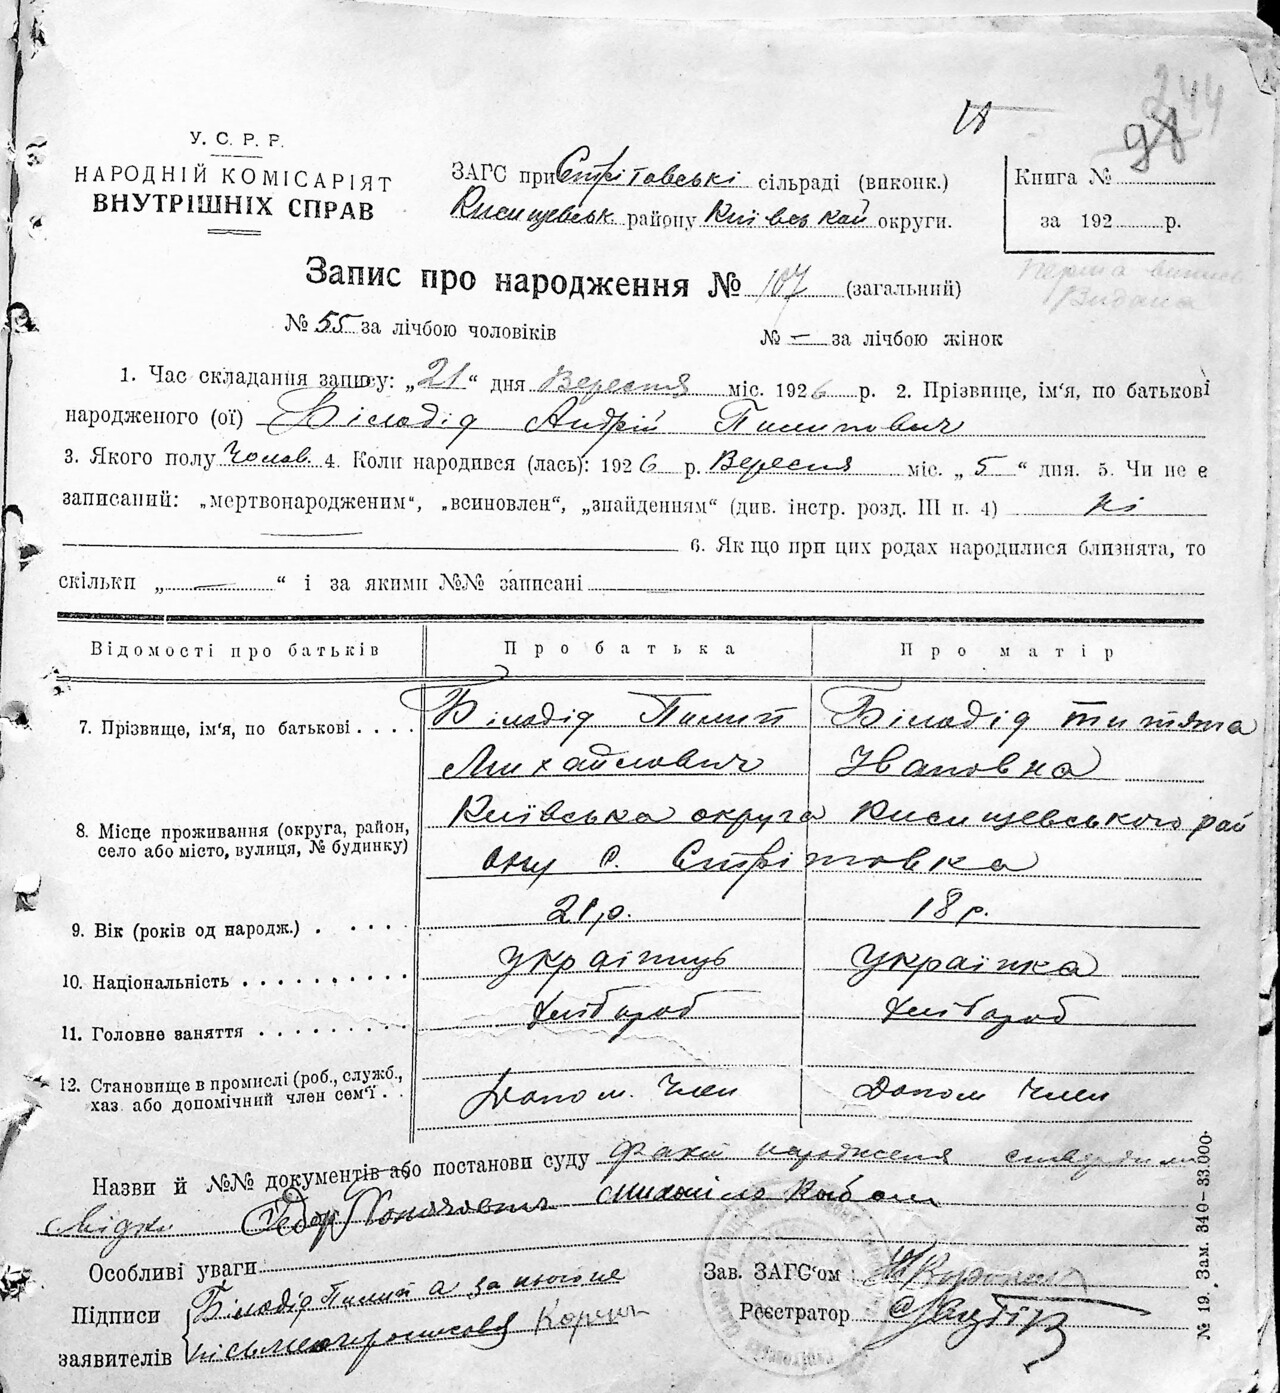 244
98
У. С. Р. Р.
НАРОДНІЙ КОМІСАРІЯТ
ВНУТРІШНІХ СПРАВ
ЗАГС при Стрітовські сільраді (виконк.)
Кисищевськ району Київськой округи.
Книга №
за 192 р.
Перша випись
Видана
Запис про народження № 107 (загальний)
№ 55 за лічбою чоловіків
№ — за лічбою жінок
1. Час складання запису: „21“ дня Вересня міс. 1926 р. 2. Прізвище, ім'я, по батькові
народженого (ої) Білодід Андрій Пилипович
3. Якого полу Чолов. 4. Коли народився (лась): 1926 р. Вересня міс. „5“ дня. 5. Чи не є
записаний: „мертвонародженим“, „всиновлен“, „знайденням“ (див. інстр. розд. III п. 4) ні
6. Як що при цих родах народилися близнята, то
скільки „ — “ і за якими №№ записані
Відомості про батьків Про батька Про матір
7. Прізвище, ім'я, по батькові Білодід Пилип Білодід Титяна
Михайлович Івановна
8. Місце проживання (округа, район, село або місто, вулиця, № будинку) Київська округа Кисищевського рай
ону с. Стрітовка
9. Вік (років од народж.) 21 р. 18 р.
10. Національність українць українка
11. Головне заняття хлібороб хлібороб
12. Становище в промислі (роб., служб., хаз або допомічний член сем'ї Допом. Член Допом Член
Назви й №№ документів або постанови суду факт народження
свідки Федор Михайло
Особливі уваги
Підписи Білодід Пилип а за його не
заявителів письменого росписовся
Зав. ЗАГС'ом
Реєстратор
№ 19. Зам. 340–33.000